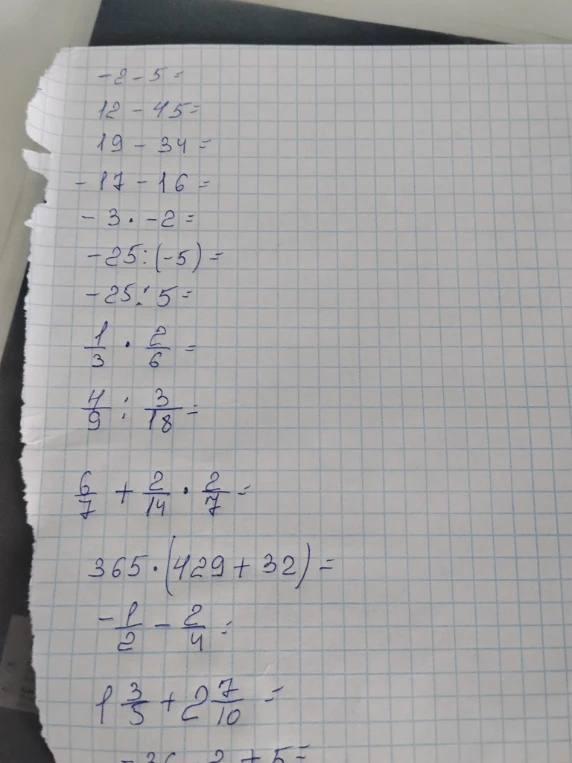 -2-5=
12-45=
19-34=
-17-16=
-3·-2=
-25:(-5)=
-25:5=
1/3 · 2/6 =
4/9 : 3/18 =
6/7 + 2/14 · 2/7 =
365·(429+32)=
-1/2 - 2/4 =
1 3/5 + 2 7/10 =